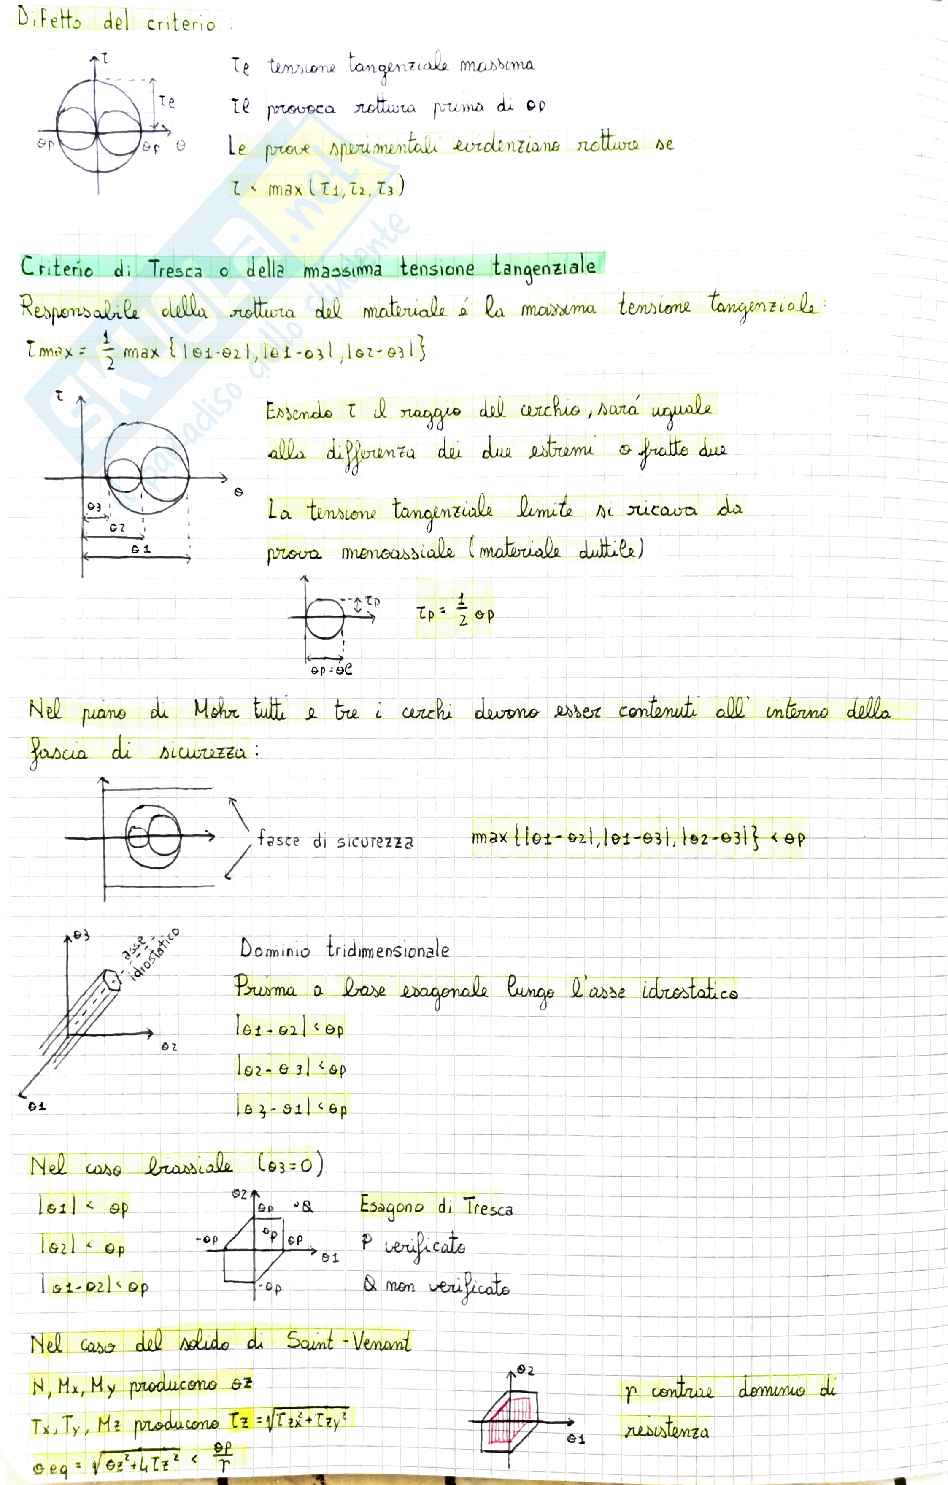 Difetto del criterio:
τ
τe
σp
σp
σ
τe tensione tangenziale massima
τe provoca rottura prima di σp
Le prove sperimentali evidenziano rotture se
τ < max(τ1, τ2, τ3)
SKUOLA.net
paradiso dello studente
Criterio di Tresca o della massima tensione tangenziale
Responsabile della rottura del materiale é la massima tensione tangenziale:
τmax = 1/2 max {|σ1-σ2|, |σ1-σ3|, |σ2-σ3|}
τ
σ
σ3
σ2
σ1
Essendo τ il raggio del cerchio, sará uguale
alla differenza dei due estremi σ fratto due
La tensione tangenziale limite si ricava da
prova monoassiale (materiale duttile)
τp
σp=σe
τp = 1/2 σp
Nel piano di Mohr tutti e tre i cerchi devono esser contenuti all' interno della
fascia di sicurezza:
fasce di sicurezza
max{|σ1-σ2|, |σ1-σ3|, |σ2-σ3|} < σp
σ3
asse
idrostatico
σ2
σ1
Dominio tridimensionale
Prisma a base esagonale lungo l'asse idrostatico
|σ1-σ2| < σp
|σ2-σ3| < σp
|σ3-σ1| < σp
Nel caso biassiale (σ3=0)
|σ1| < σp
|σ2| < σp
|σ1-σ2| < σp
σ2
σp
•Q
-σp
•p
σp
σ1
-σp
Esagono di Tresca
P verificato
Q non verificato
Nel caso del solido di Saint-Venant
N, Mx, My producono σz
Tx, Ty, Mz producono τz = √(τzx²+τzy²)
σeq = √(σz²+4τz²) < σp/γ
σ2
σ1
γ contrae dominio di
resistenza